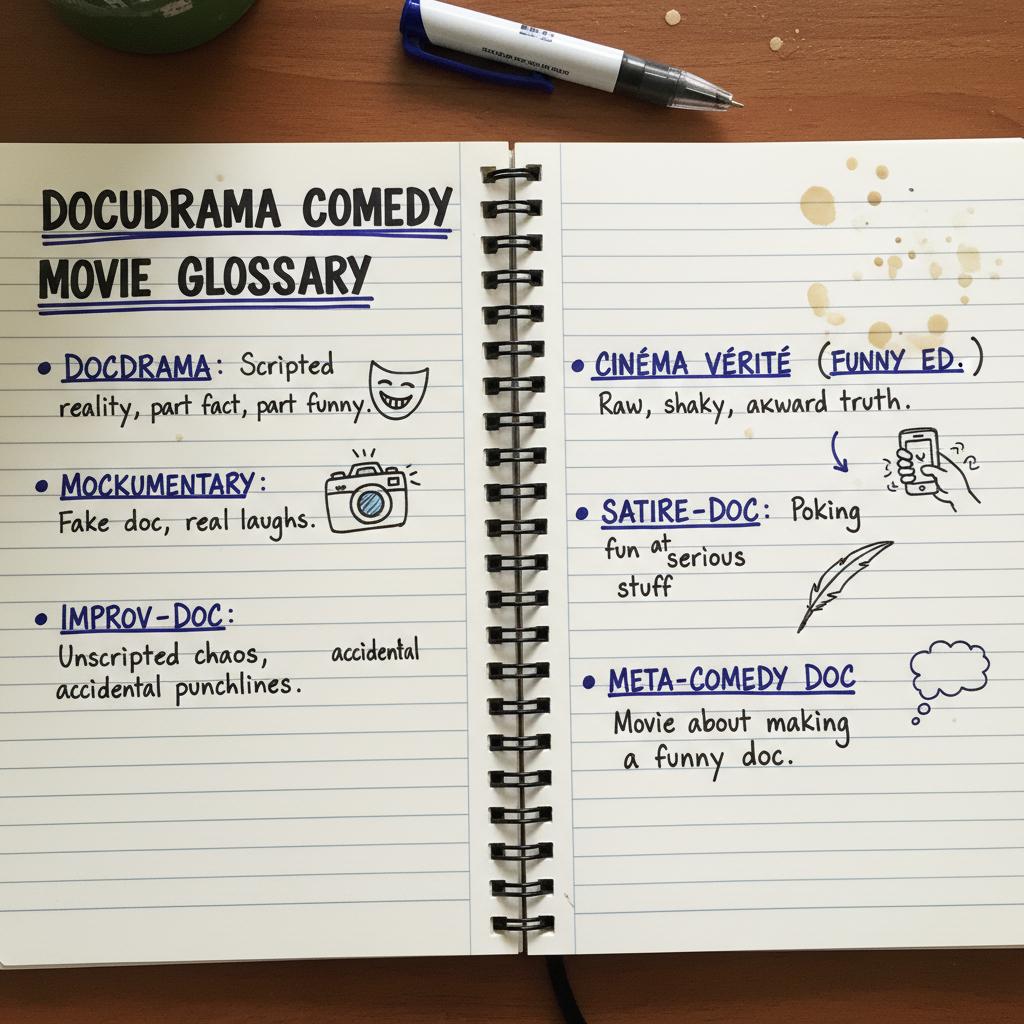 DOCUDRAMA COMEDY
MOVIE GLOSSARY
• DOCDRAMA: Scripted
reality, part fact, part funny.
• MOCKUMENTARY:
Fake doc, real laughs.
• IMPROV-DOC:
Unscripted chaos, accidental
accidental punchlines.
• CINÉMA VÉRITÉ (FUNNY ED.)
Raw, shaky, akward truth.
• SATIRE-DOC: Poking
fun at serious
stuff
• META-COMEDY DOC
Movie about making
a funny doc.